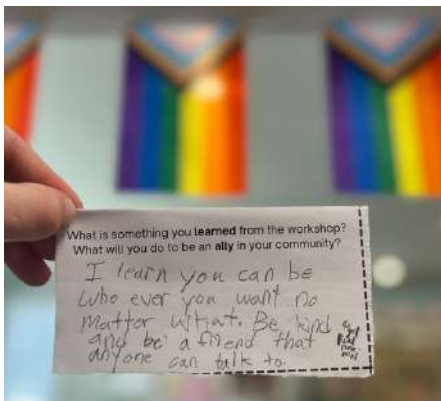 What is something you learned from the workshop?
What will you do to be an ally in your community?
I learn you can be
who ever you want no
matter what. Be kind
and be a friend that
anyone can talk to.